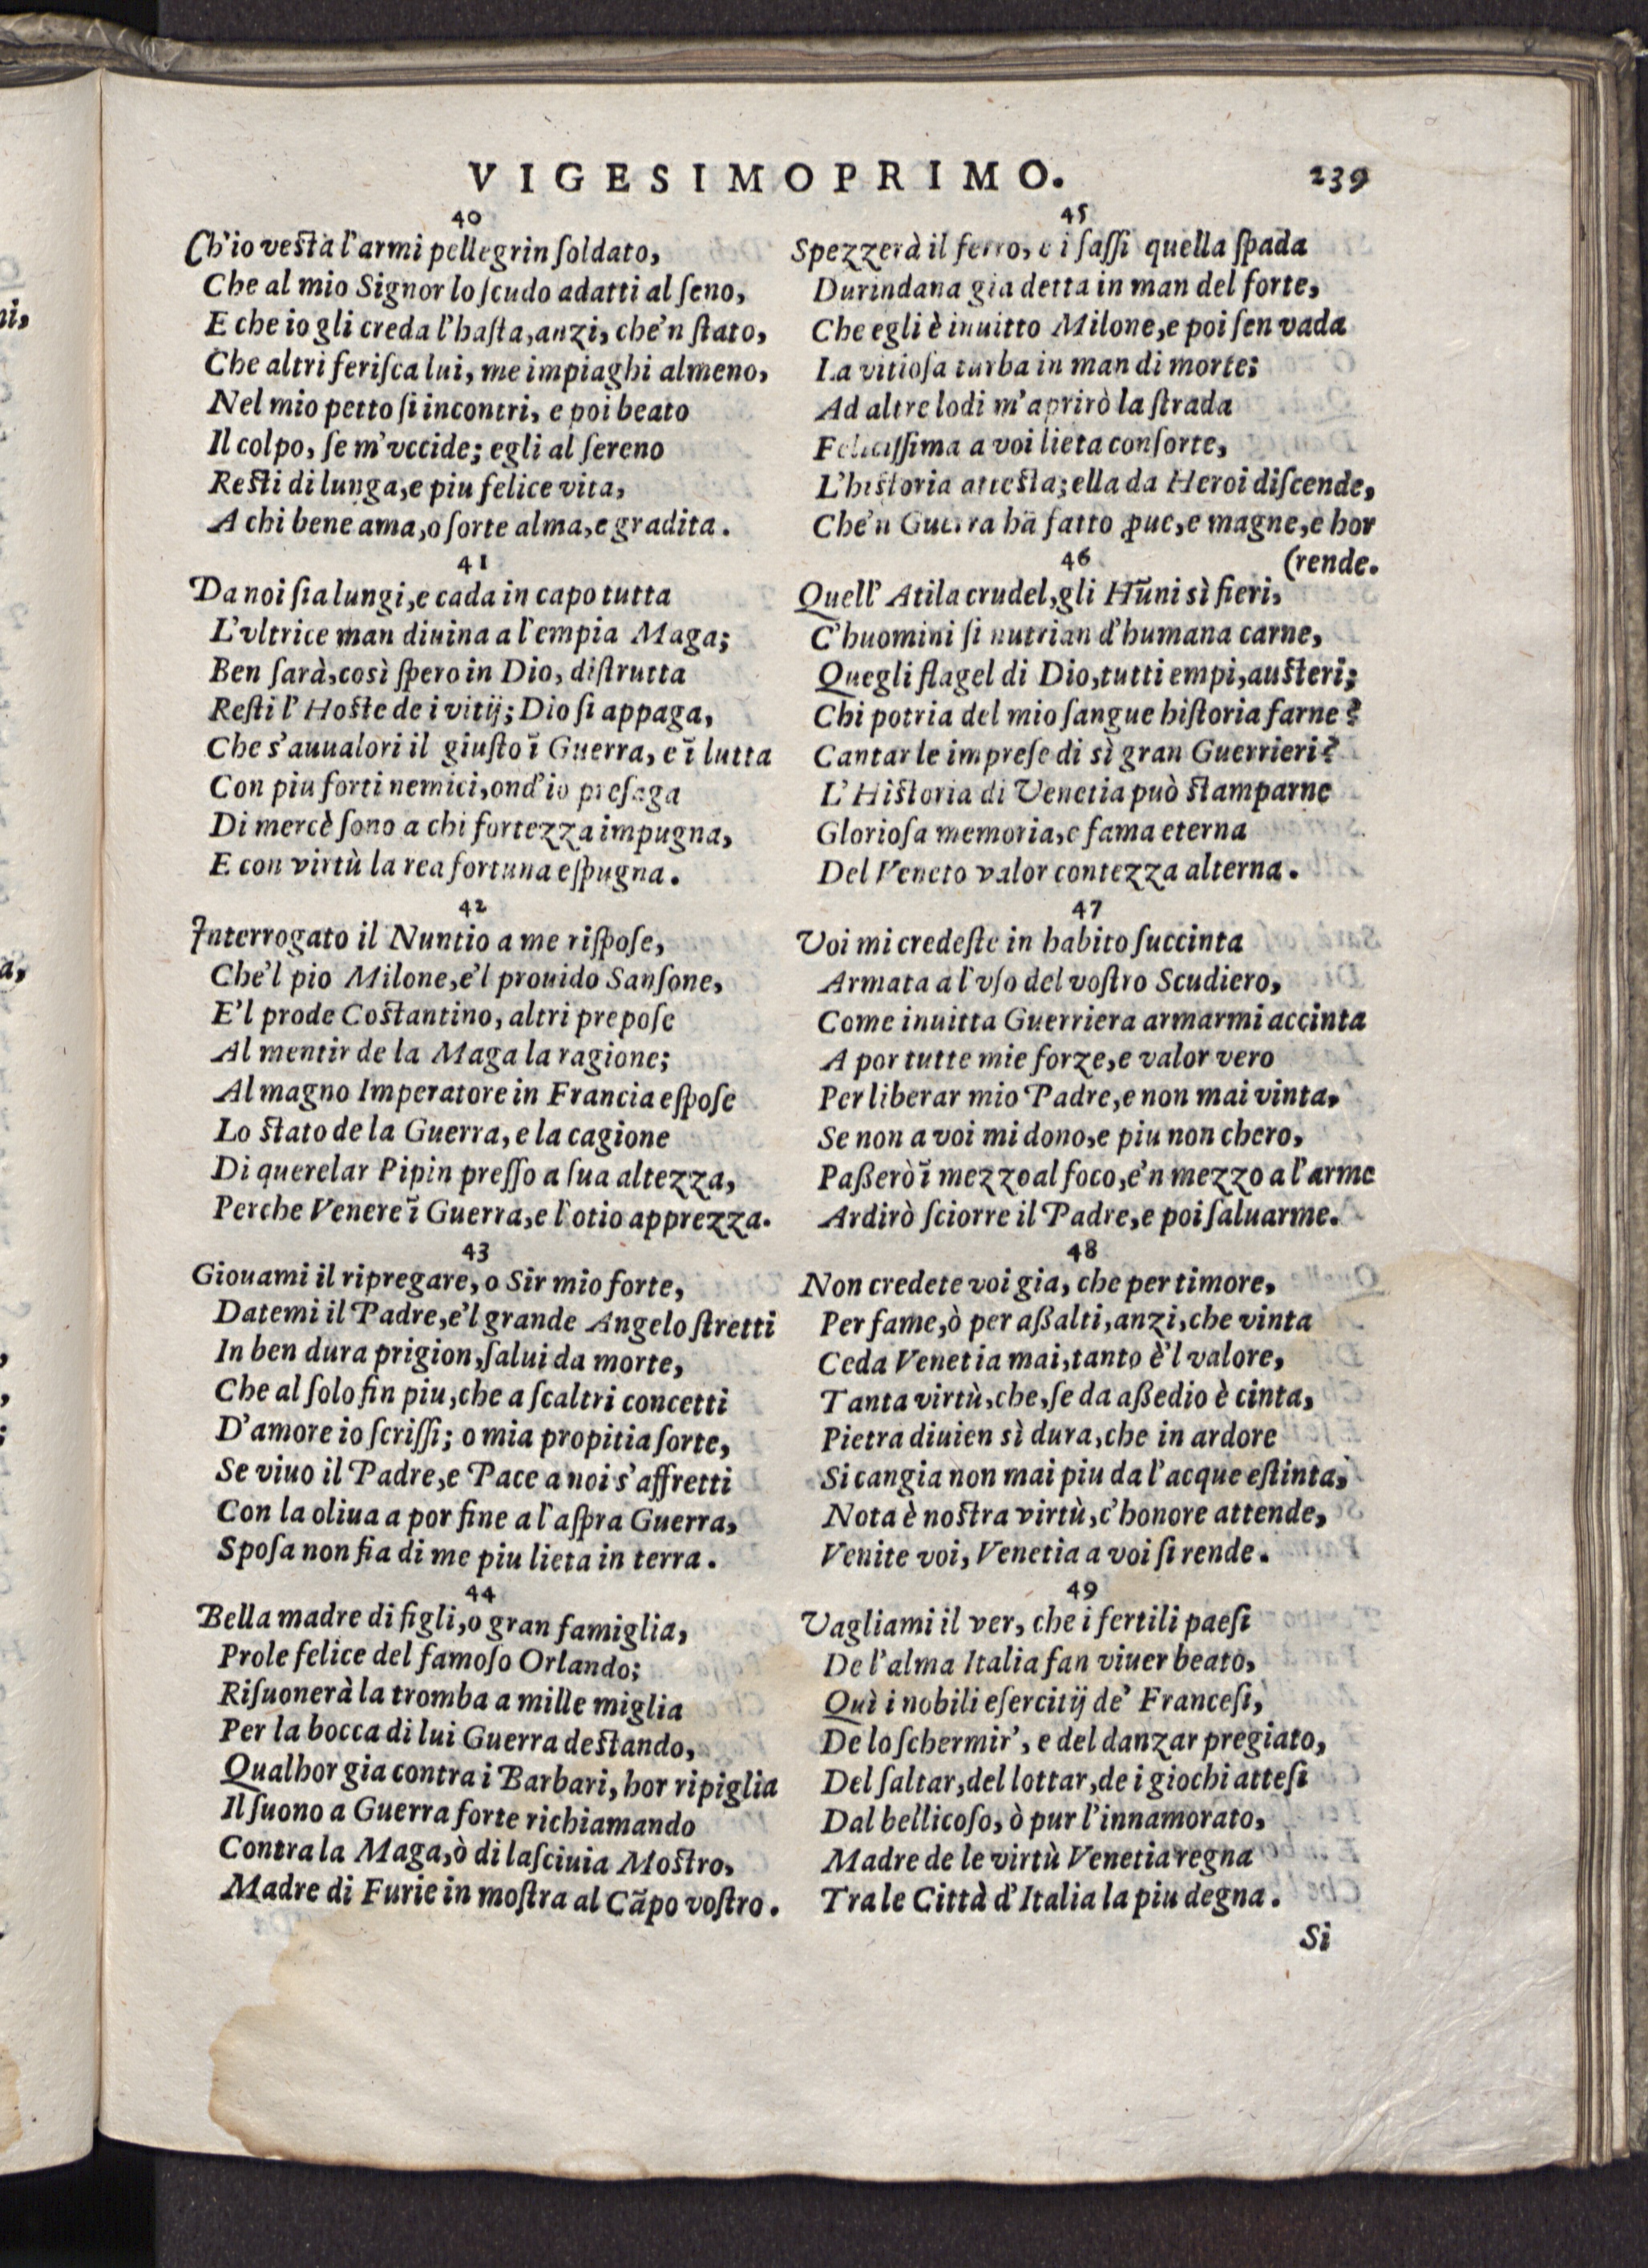 VIGESIMOPRIMO. 239
40
Ch'io vesta l'armi pellegrin ſoldato,
Che al mio Signor lo ſcudo adatti al ſeno,
E che io gli creda l'haſta, anzi, che'n ſtato,
Che altri feriſca lui, me impiaghi almeno,
Nel mio petto ſi incontri, e poi beato
Il colpo, ſe m'vccide; egli al ſereno
Resti di lunga, e piu felice vita,
A chi bene ama, o ſorte alma, e gradita.
41
Da noi ſta lungi, e cada in capo tutta
L'vltrice man diuina a l'empia Maga;
Ben ſarà, così ſpero in Dio, diſtrutta
Reſti l'Hoste de i vitij; Dio ſi appaga,
Che s'auualori il giuſto ĩ Guerra, e ĩ lutta
Con piu forti nemici, ond'io preſaga
Di mercè ſono a chi fortezza impugna,
E con virtù la rea fortuna eſpugna.
42
Interrogato il Nuntio a me riſpoſe,
Che'l pio Milone, e'l prouido Sanſone,
E'l prode Costantino, altri prepoſe
Al mentir de la Maga la ragione;
Al magno Imperatore in Francia eſpoſe
Lo stato de la Guerra, e la cagione
Di querelar Pipin preſſo a ſua altezza,
Perche Venere ĩ Guerra, e l'otio apprezza.
43
Giouami il ripregare, o Sir mio forte,
Datemi il Padre, e'l grande Angelo ſtretti
In ben dura prigion, ſalui da morte,
Che al ſolo fin piu, che a ſcaltri concetti
D'amore io ſcriſſi; o mia propitia ſorte,
Se viuo il Padre, e Pace a noi s'affretti
Con la oliua a por fine a l'aſpra Guerra,
Spoſa non fia di me piu lieta in terra.
44
Bella madre di figli, o gran famiglia,
Prole felice del famoſo Orlando;
Riſuonerà la tromba a mille miglia
Per la bocca di lui Guerra destando,
Qualhor gia contra i Barbari, hor ripiglia
Il ſuono a Guerra forte richiamando
Contra la Maga, ò di laſciuia Mostro,
Madre di Furie in moſtra al Cãpo voſtro.
45
Spezzerà il ferro, e i ſaſſi quella ſpada
Durindana gia detta in man del forte,
Che egli è inuitto Milone, e poi ſen vada
La vitioſa turba in man di morte;
Ad altre lodi m'aprirò la ſtrada
Feliciſſima a voi lieta conſorte,
L'historia attesta; ella da Heroi diſcende,
Che'n Guerra hã fatto ꝓue, e magne, e hor
(rende.
46
Quell' Atila crudel, gli Hũni sì fieri,
C'huomini ſi nutrian d'humana carne,
Quegli flagel di Dio, tutti empi, austeri;
Chi potria del mio ſangue hiſtoria farne?
Cantar le impreſe di sì gran Guerrieri?
L'Historia di Venetia può stamparne
Glorioſa memoria, e fama eterna
Del Veneto valor contezza alterna.
47
Voi mi credeſte in habito ſuccinta
Armata a l'vſo del voſtro Scudiero,
Come inuitta Guerriera armarmi accinta
A por tutte mie forze, e valor vero
Per liberar mio Padre, e non mai vinta,
Se non a voi mi dono, e piu non chero,
Paßerò ĩ mezzo al foco, e'n mezzo a l'arme
Ardirò ſciorre il Padre, e poi ſaluarme.
48
Non credete voi gia, che per timore,
Per fame, ò per aßalti, anzi, che vinta
Ceda Venetia mai, tanto è'l valore,
Tanta virtù, che, ſe da aßedio è cinta,
Pietra diuien sì dura, che in ardore
Si cangia non mai piu da l'acque eſtinta;
Nota è nostra virtù, c'honore attende,
Venite voi, Venetia a voi ſi rende.
49
Vagliami il ver, che i fertili paeſi
De l'alma Italia fan viuer beato,
Quì i nobili eſercitij de' Franceſi,
De lo ſchermir', e del danzar pregiato,
Del ſaltar, del lottar, de i giochi atteſi
Dal bellicoſo, ò pur l'innamorato,
Madre de le virtù Venetia regna
Tra le Città d'Italia la piu degna.
Si